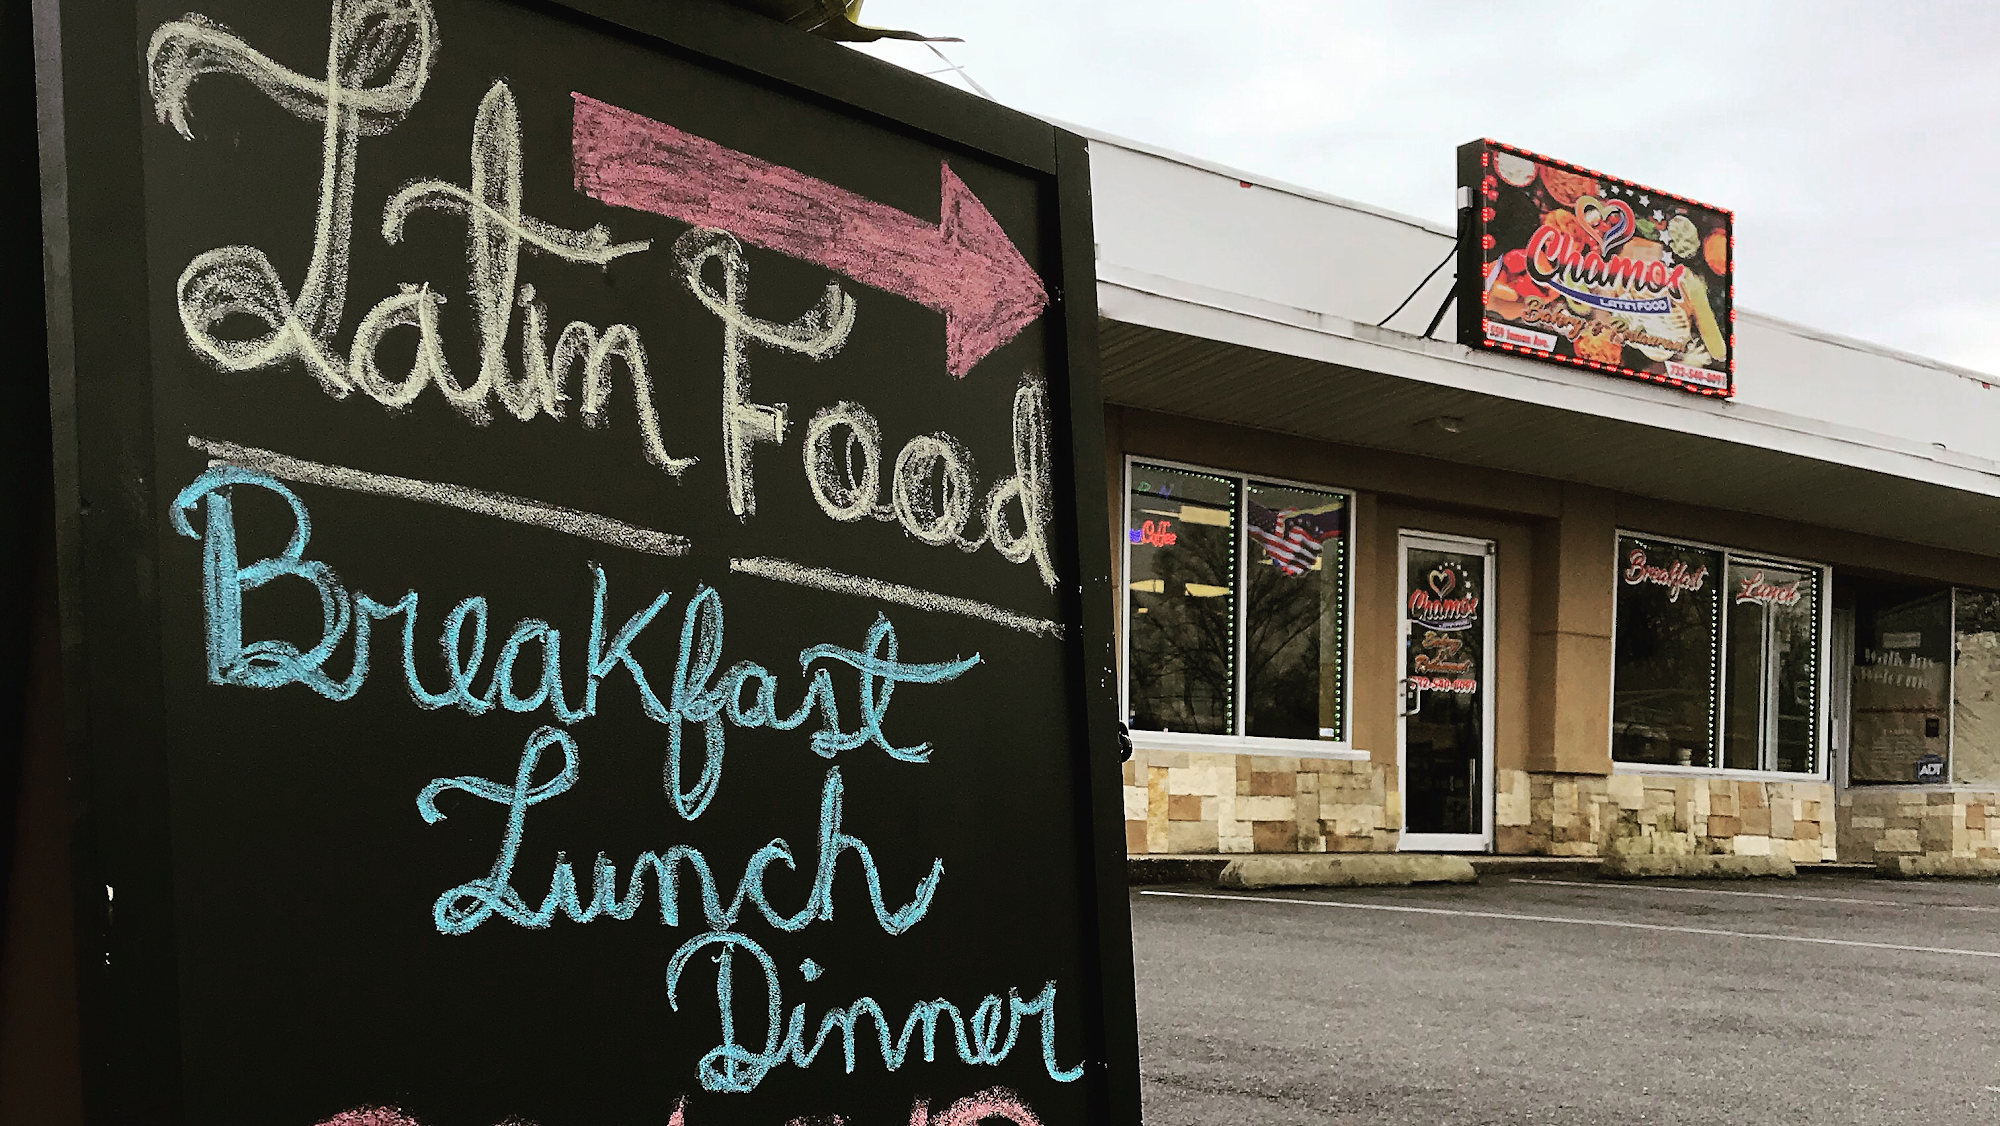 Latin Food
Breakfast
Lunch
Dinner
Chamos
LATIN FOOD
Bakery & Restaurant
559 Inman Ave.
732-540-8091
Coffee
Chamos
Bakery
Restaurant
732-540-8091
Breakfast
Lunch
Walk Ins
welcome
ADT